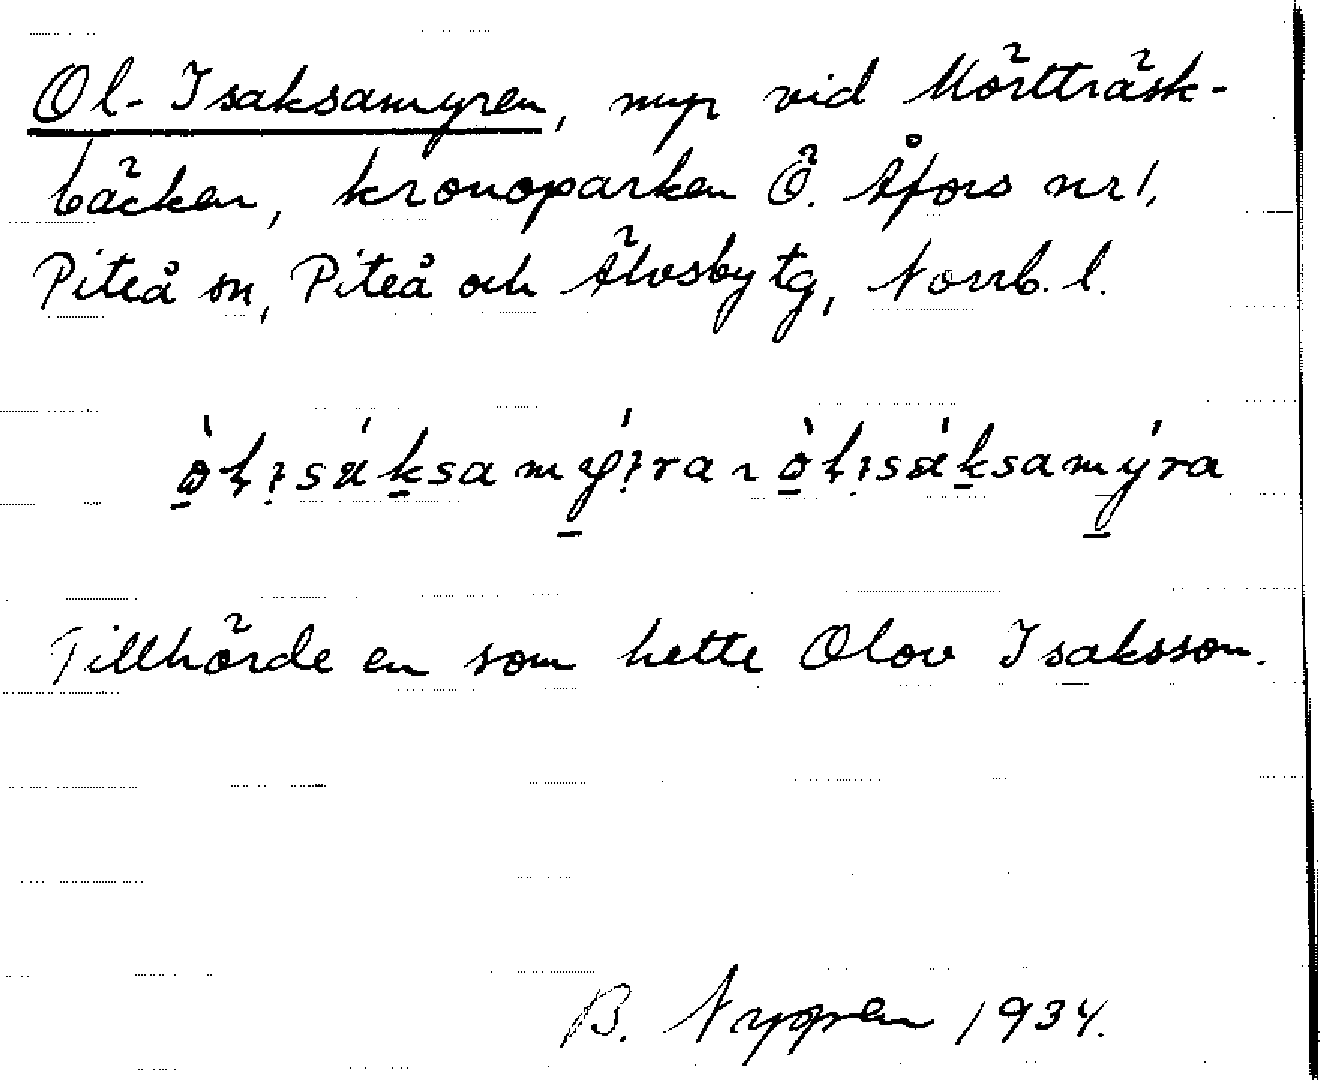 Ol-Isaksamyren, myr vid Mörtträsk-
bäcken, kronoparken Ö. Åfors nr 1,
Piteå sn, Piteå och Älvsby tg, Norrb. l.
Tillhörde en som hette Olov Isaksson.
B. Nygren 1934.